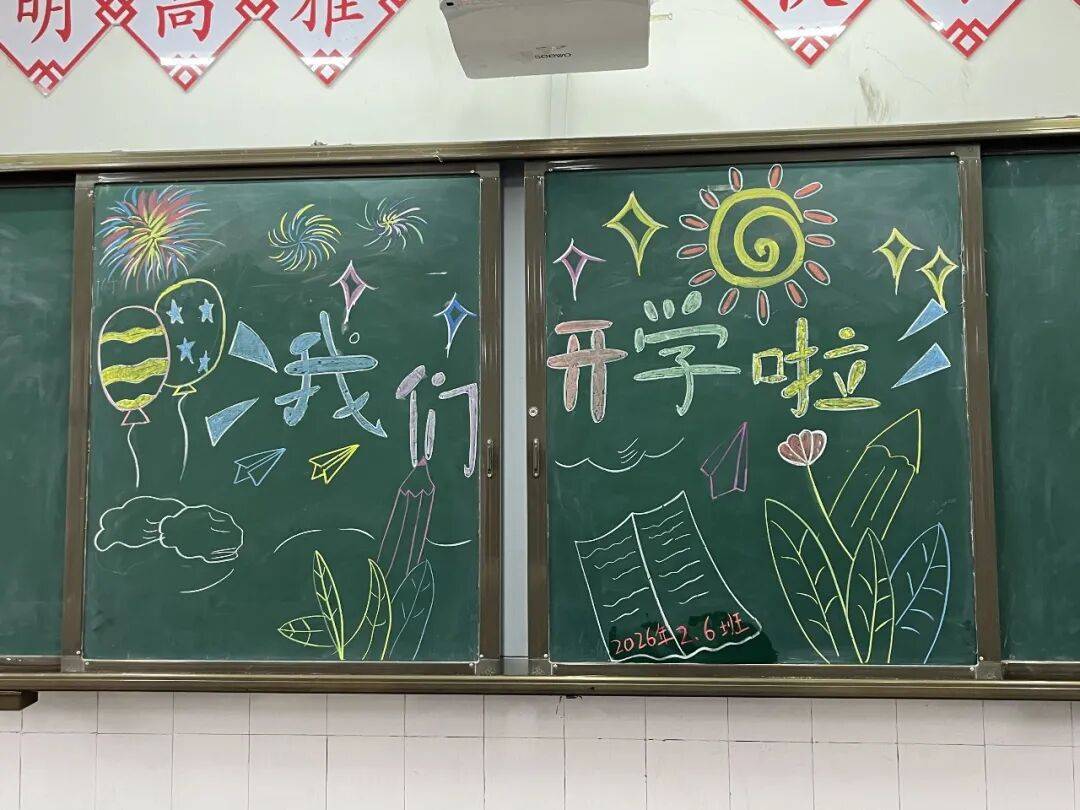 明高雅
我们开学啦
2026年2.6班